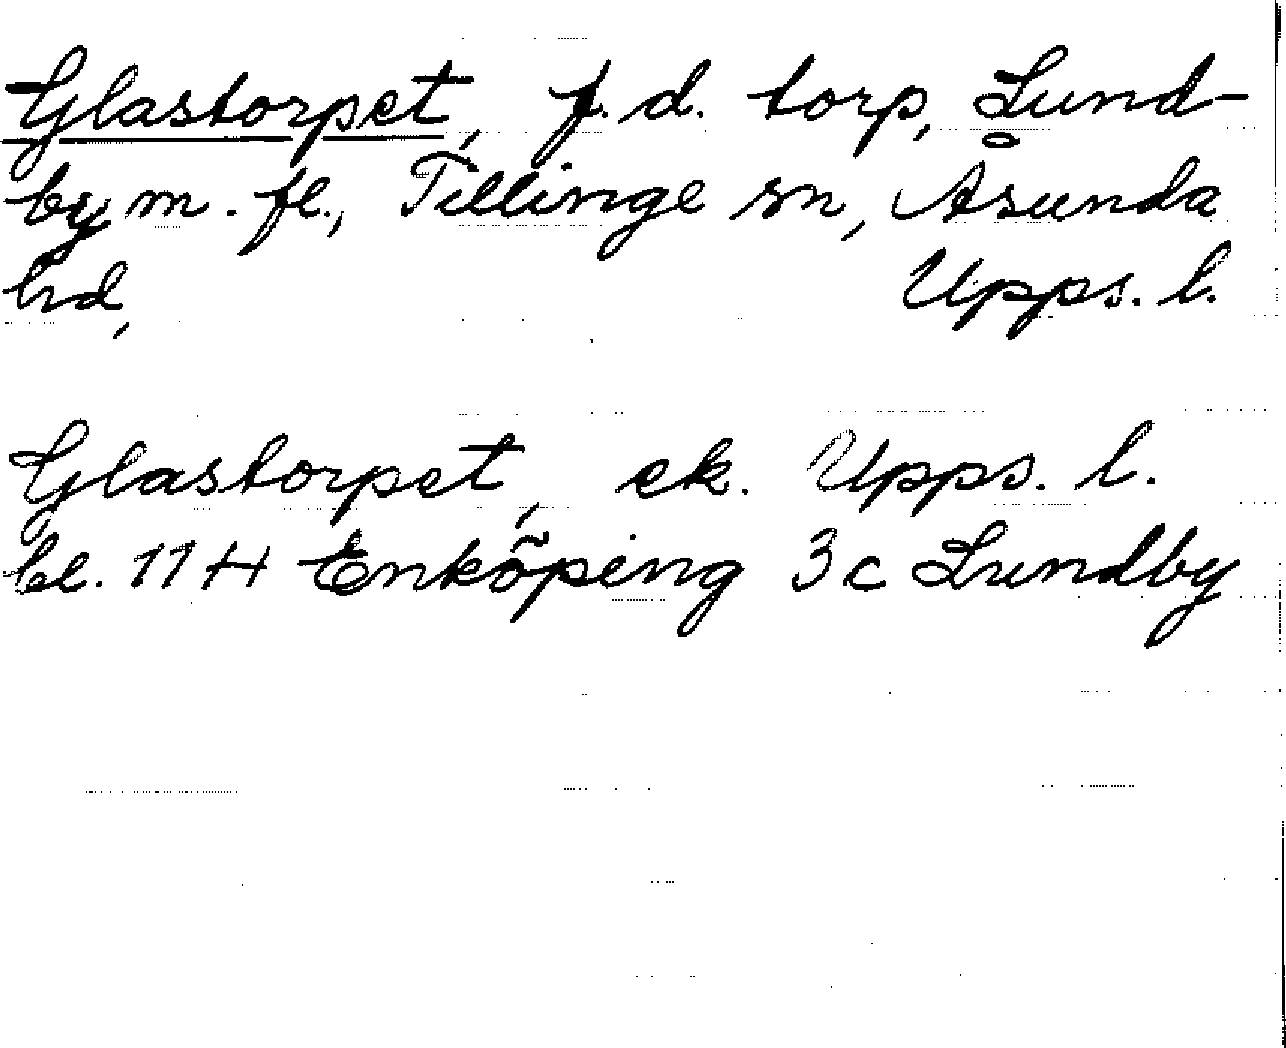 Glastorpet, f.d. torp, Lund-
by m. fl., Tillinge sn, Åsunda
hd, Upps. l.
Glastorpet, ek. Upps. l.
bl. 11H Enköping 3c Lundby